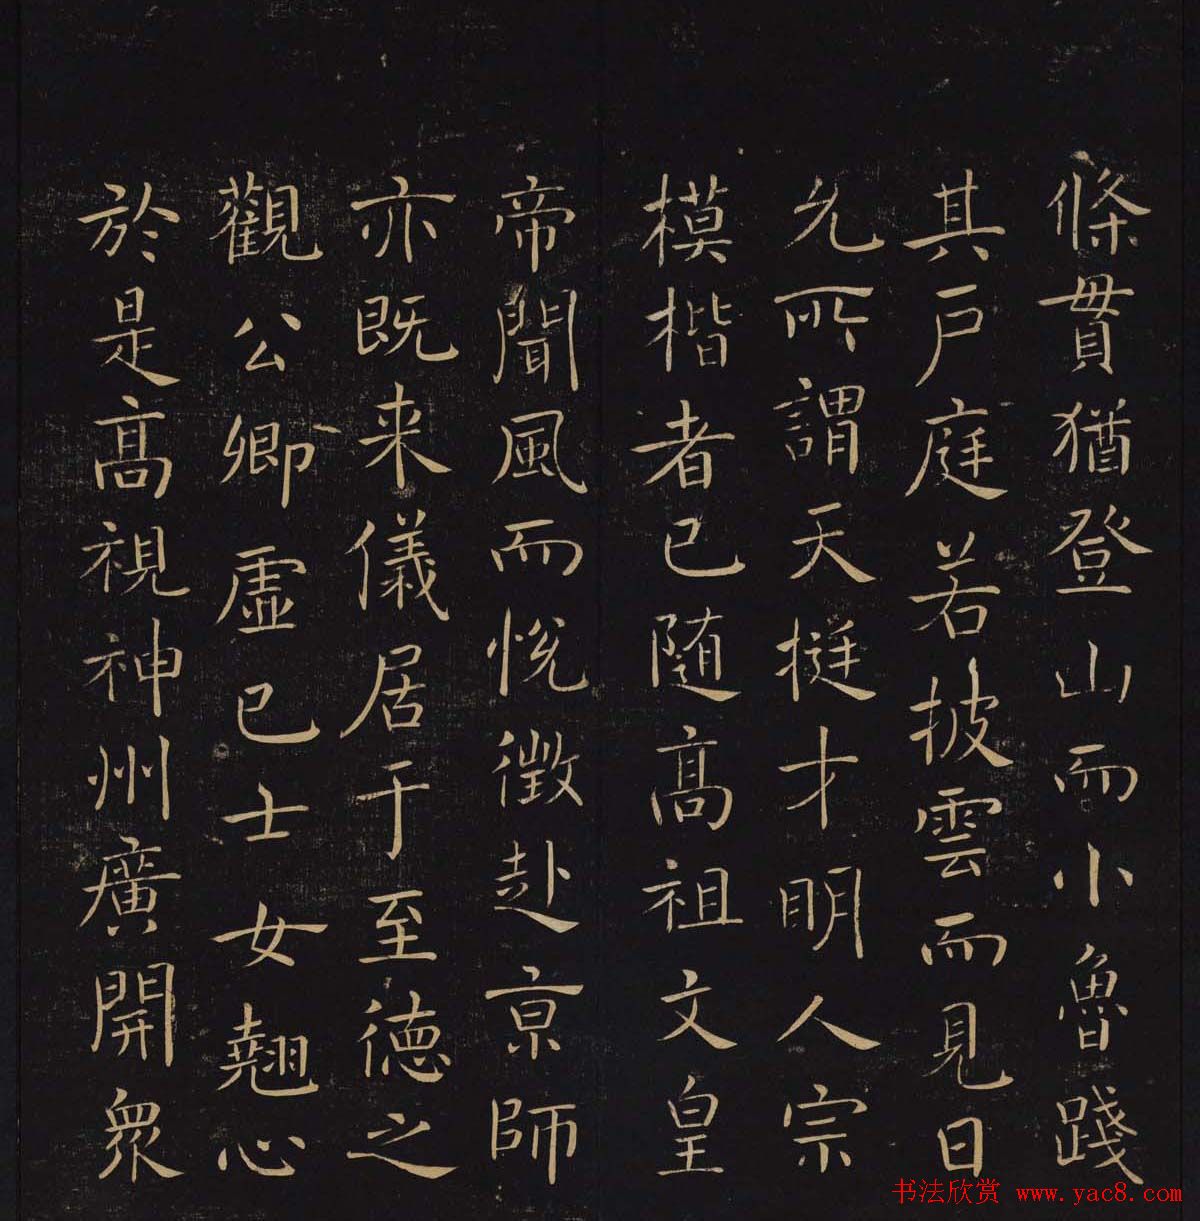 條貫猶登山而小魯踐
其戶庭若披雲而見日
允所謂天挺才明人宗
模楷者已随髙祖文皇
帝聞風而悅徵赴京師
亦既来儀居于至德之
觀公卿虛已士女翹心
於是髙視神州廣開衆
书法欣赏 www.yac8.com